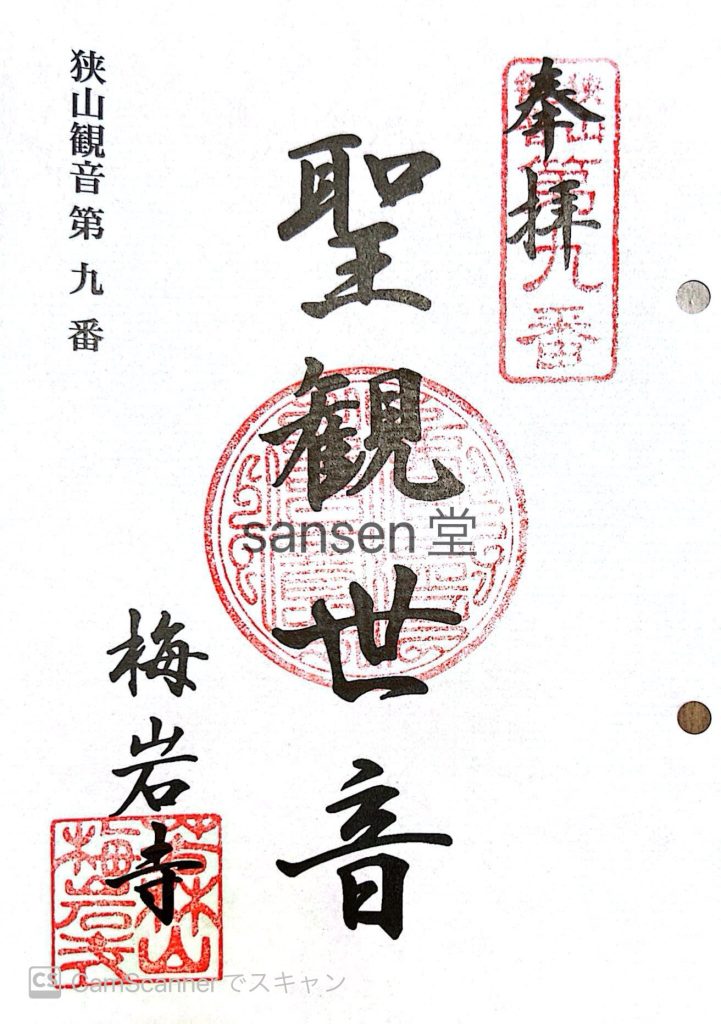 奉拝
狭山
観音
第九番
聖観世音
sansen堂
狭山観音第九番
梅岩寺
CS CamScannerでスキャン